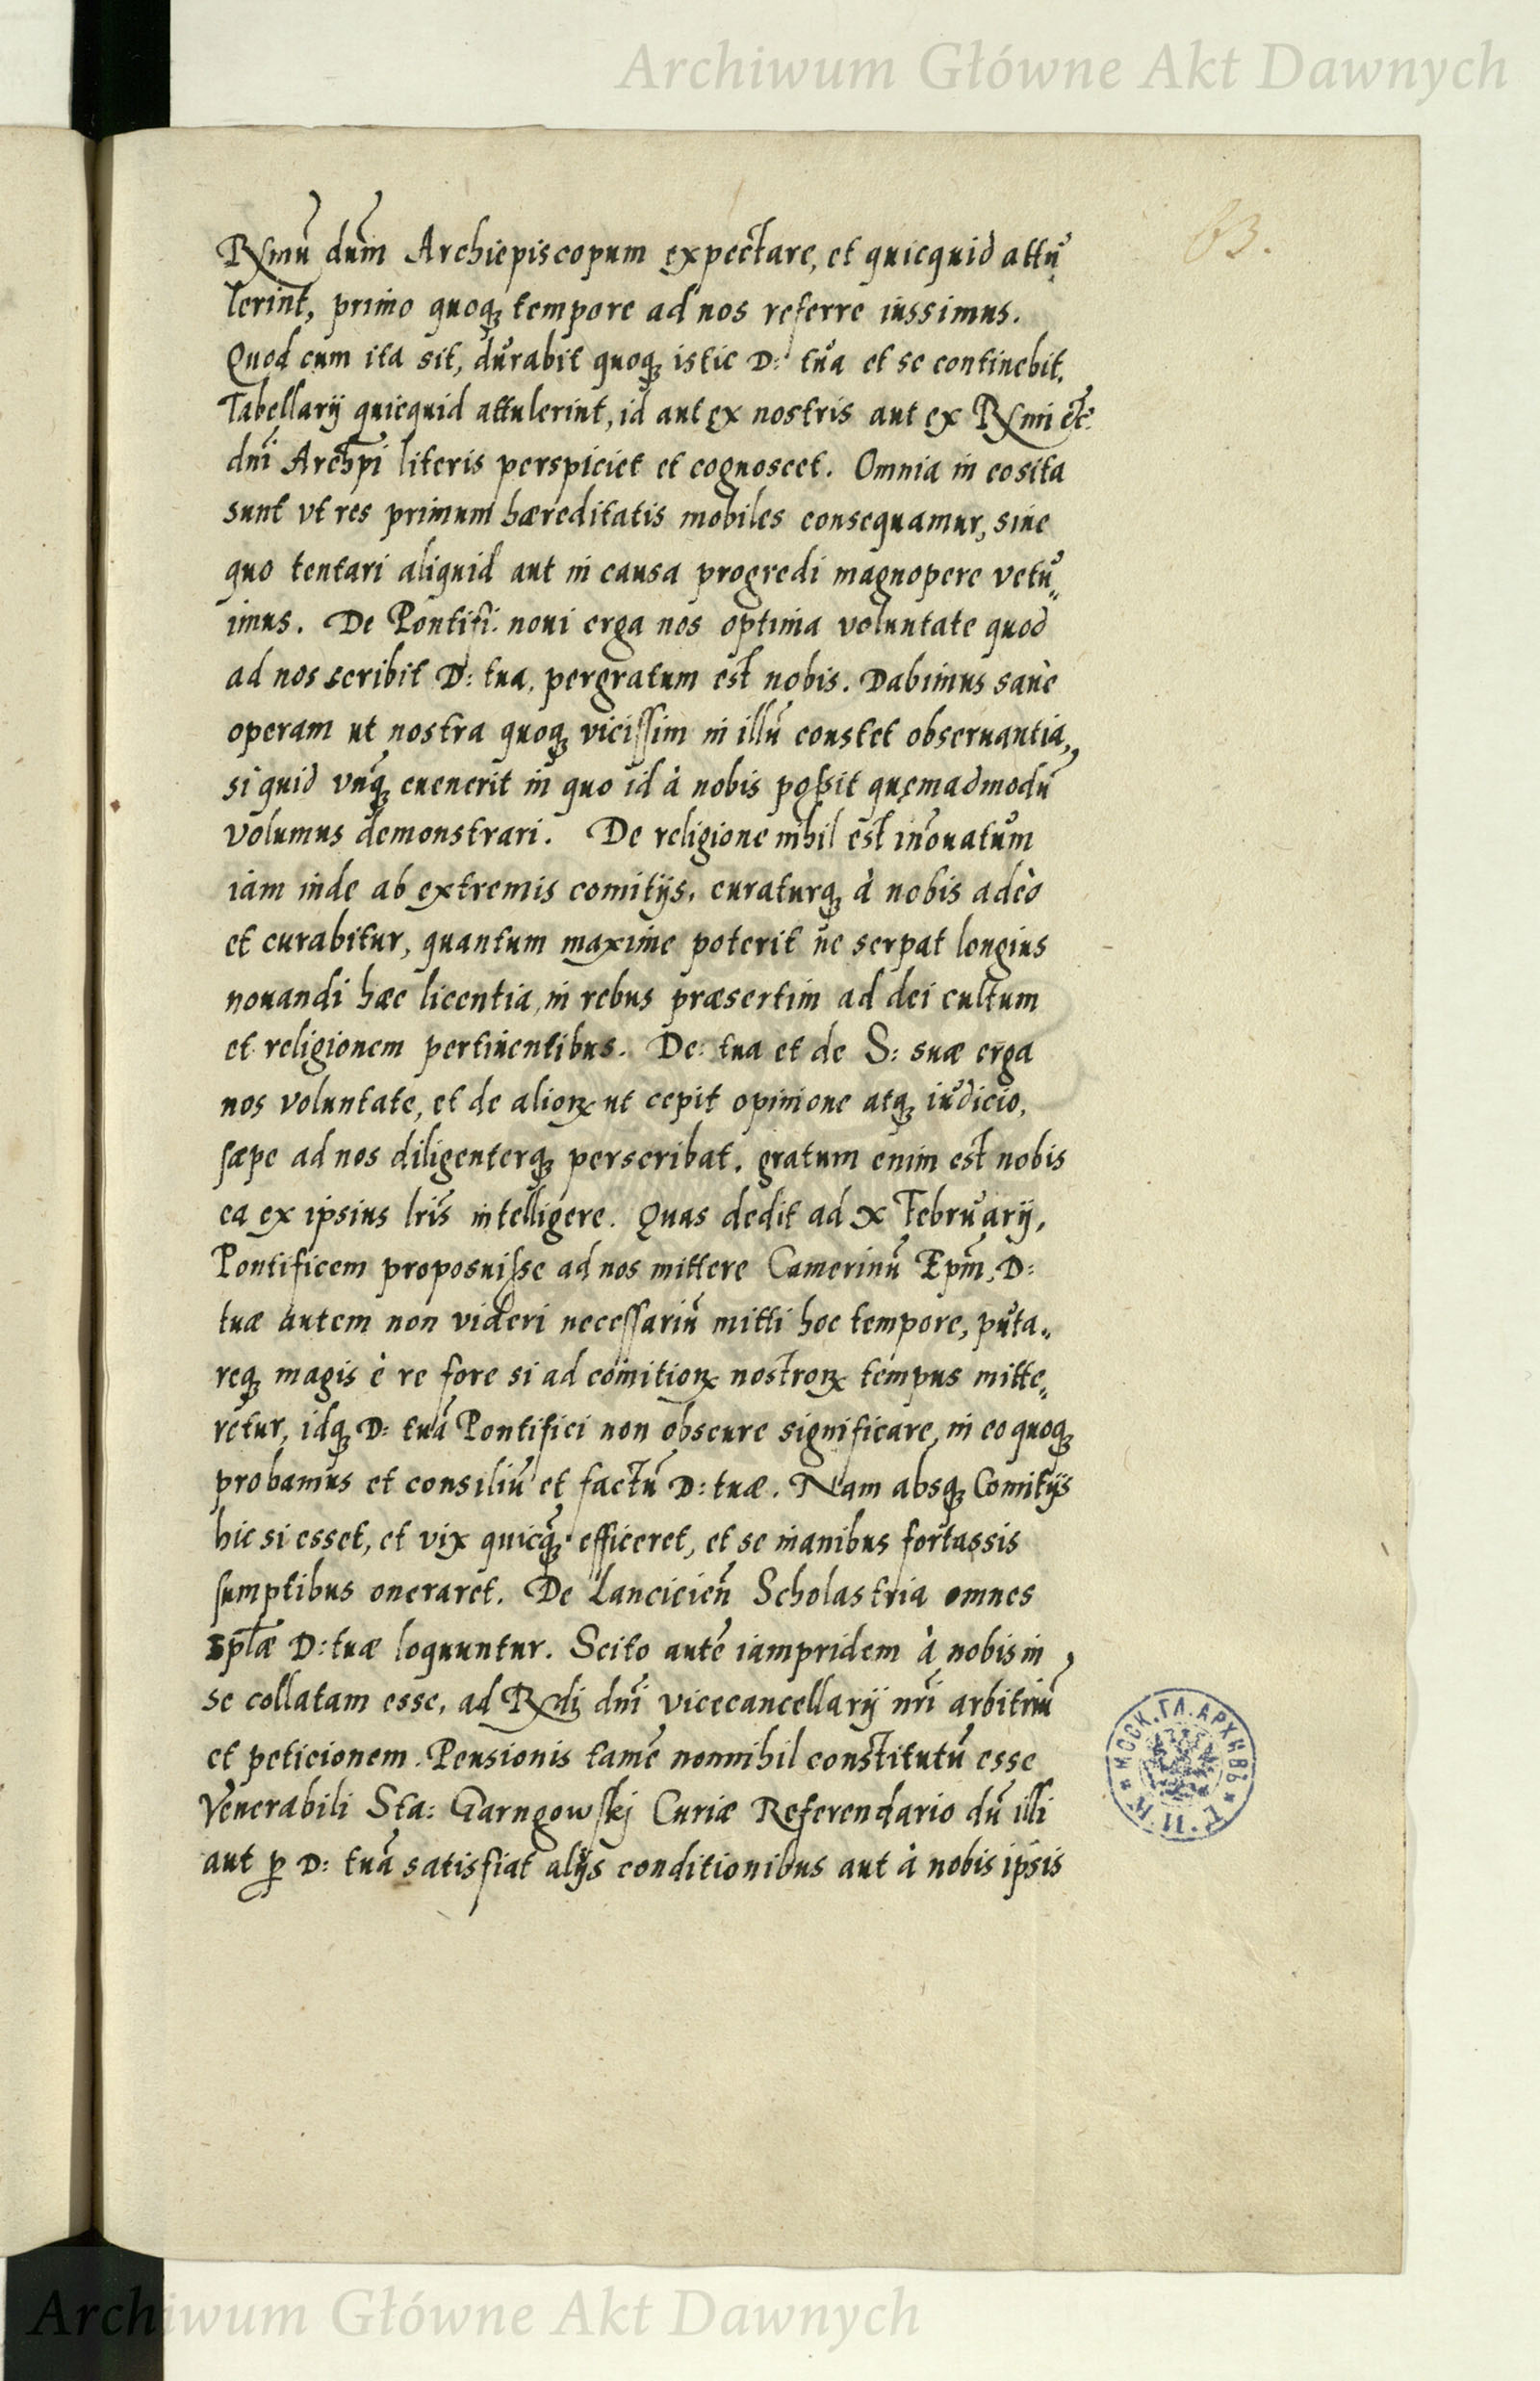 Archiwum Główne Akt Dawnych
83.
Rx̃mũ dũm Archiepiscopum expectare, et quicquid attu
lerint, primo quoq; tempore ad nos referre iussimus.
Quod cum ita sit, durabit quoq; istic D: tua et se continebit.
Tabellarij quicquid attulerint, id aut ex nostris aut ex Rx̃mi etc.
dñi Archp̃i literis perspiciet et cognoscet. Omnia in eo sita
sunt vt res primum hæreditatis mobiles consequamur, sine
quo tentari aliquid aut in causa progredi magnopere vetu„
imus. De Pontifi. noui erga nos optima voluntate quod
ad nos scribit D: tua, pergratum est nobis. Dabimus sanè
operam ut nostra quoq; vicissim in illũ constet obseruantia,
si quid vnq̃; euenerit in quo id à nobis possit quemadmodũ
volumus demonstrari. De religione nihil est iñouatum
iam inde ab extremis comitijs, curaturq; à nobis adeò
et curabitur, quantum maxime poterit ne serpat longius
nouandi hæc licentia, in rebus præsertim ad dei cultum
et religionem pertinentibus. De: tua et de S: suæ erga
nos voluntate, et de alioꝝ ut cepit opinione atq; iudicio,
sæpe ad nos diligenterq; perscribat, gratum enim est nobis
ea ex ipsius lr̃is intelligere. Quas dedit ad x Februarij,
Pontificem proposuisse ad nos mittere Camerinũ Ep̃m, D:
tuæ autem non videri necessariũ mitti hoc tempore, puta„
req; magis è re fore si ad comitioꝝ nostroꝝ tempus mitte„
retur, idq; D: tuã Pontifici non obscure significare, in eo quoq;
probamus et consiliũ et factũ D: tuæ. Nam absq; Comitijs
hic si esset, et vix quicq̃; efficeret, et se inanibus fortassis
sumptibus oneraret. De Lancicieñ Scholastria omnes
Ep̃læ D: tuæ loquuntur. Scito autẽ iampridem à nobis in
se collatam esse, ad Rx̃di dñi vicecancellarij nr̃i arbitriũ
et peticionem. Pensionis tamẽ nonnihil constitutũ esse
Venerabili Sta: Garngowskj Curiæ Referendario dũ illi
aut ꝑ D: tuã satisfiat alijs conditionibus aut à nobis ipsis
МОСК. ГЛ. АРХИВЪ
Archiwum Główne Akt Dawnych